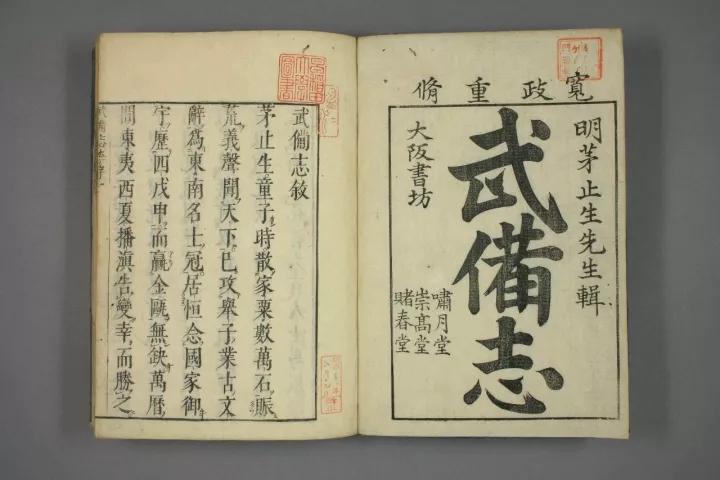 寬政重脩
明茅止生先生輯
武備志
大阪書坊
嘯月堂
崇高堂
賭春堂
武備志敘
茅止生童子時散家粟數萬石賑
荒義聲聞天下已攻舉子業古文
辭為東南名士冠居恒念國家御
宇歷四戊申而贏金甌無缺萬曆
間東夷西夏播滇告變幸而勝之